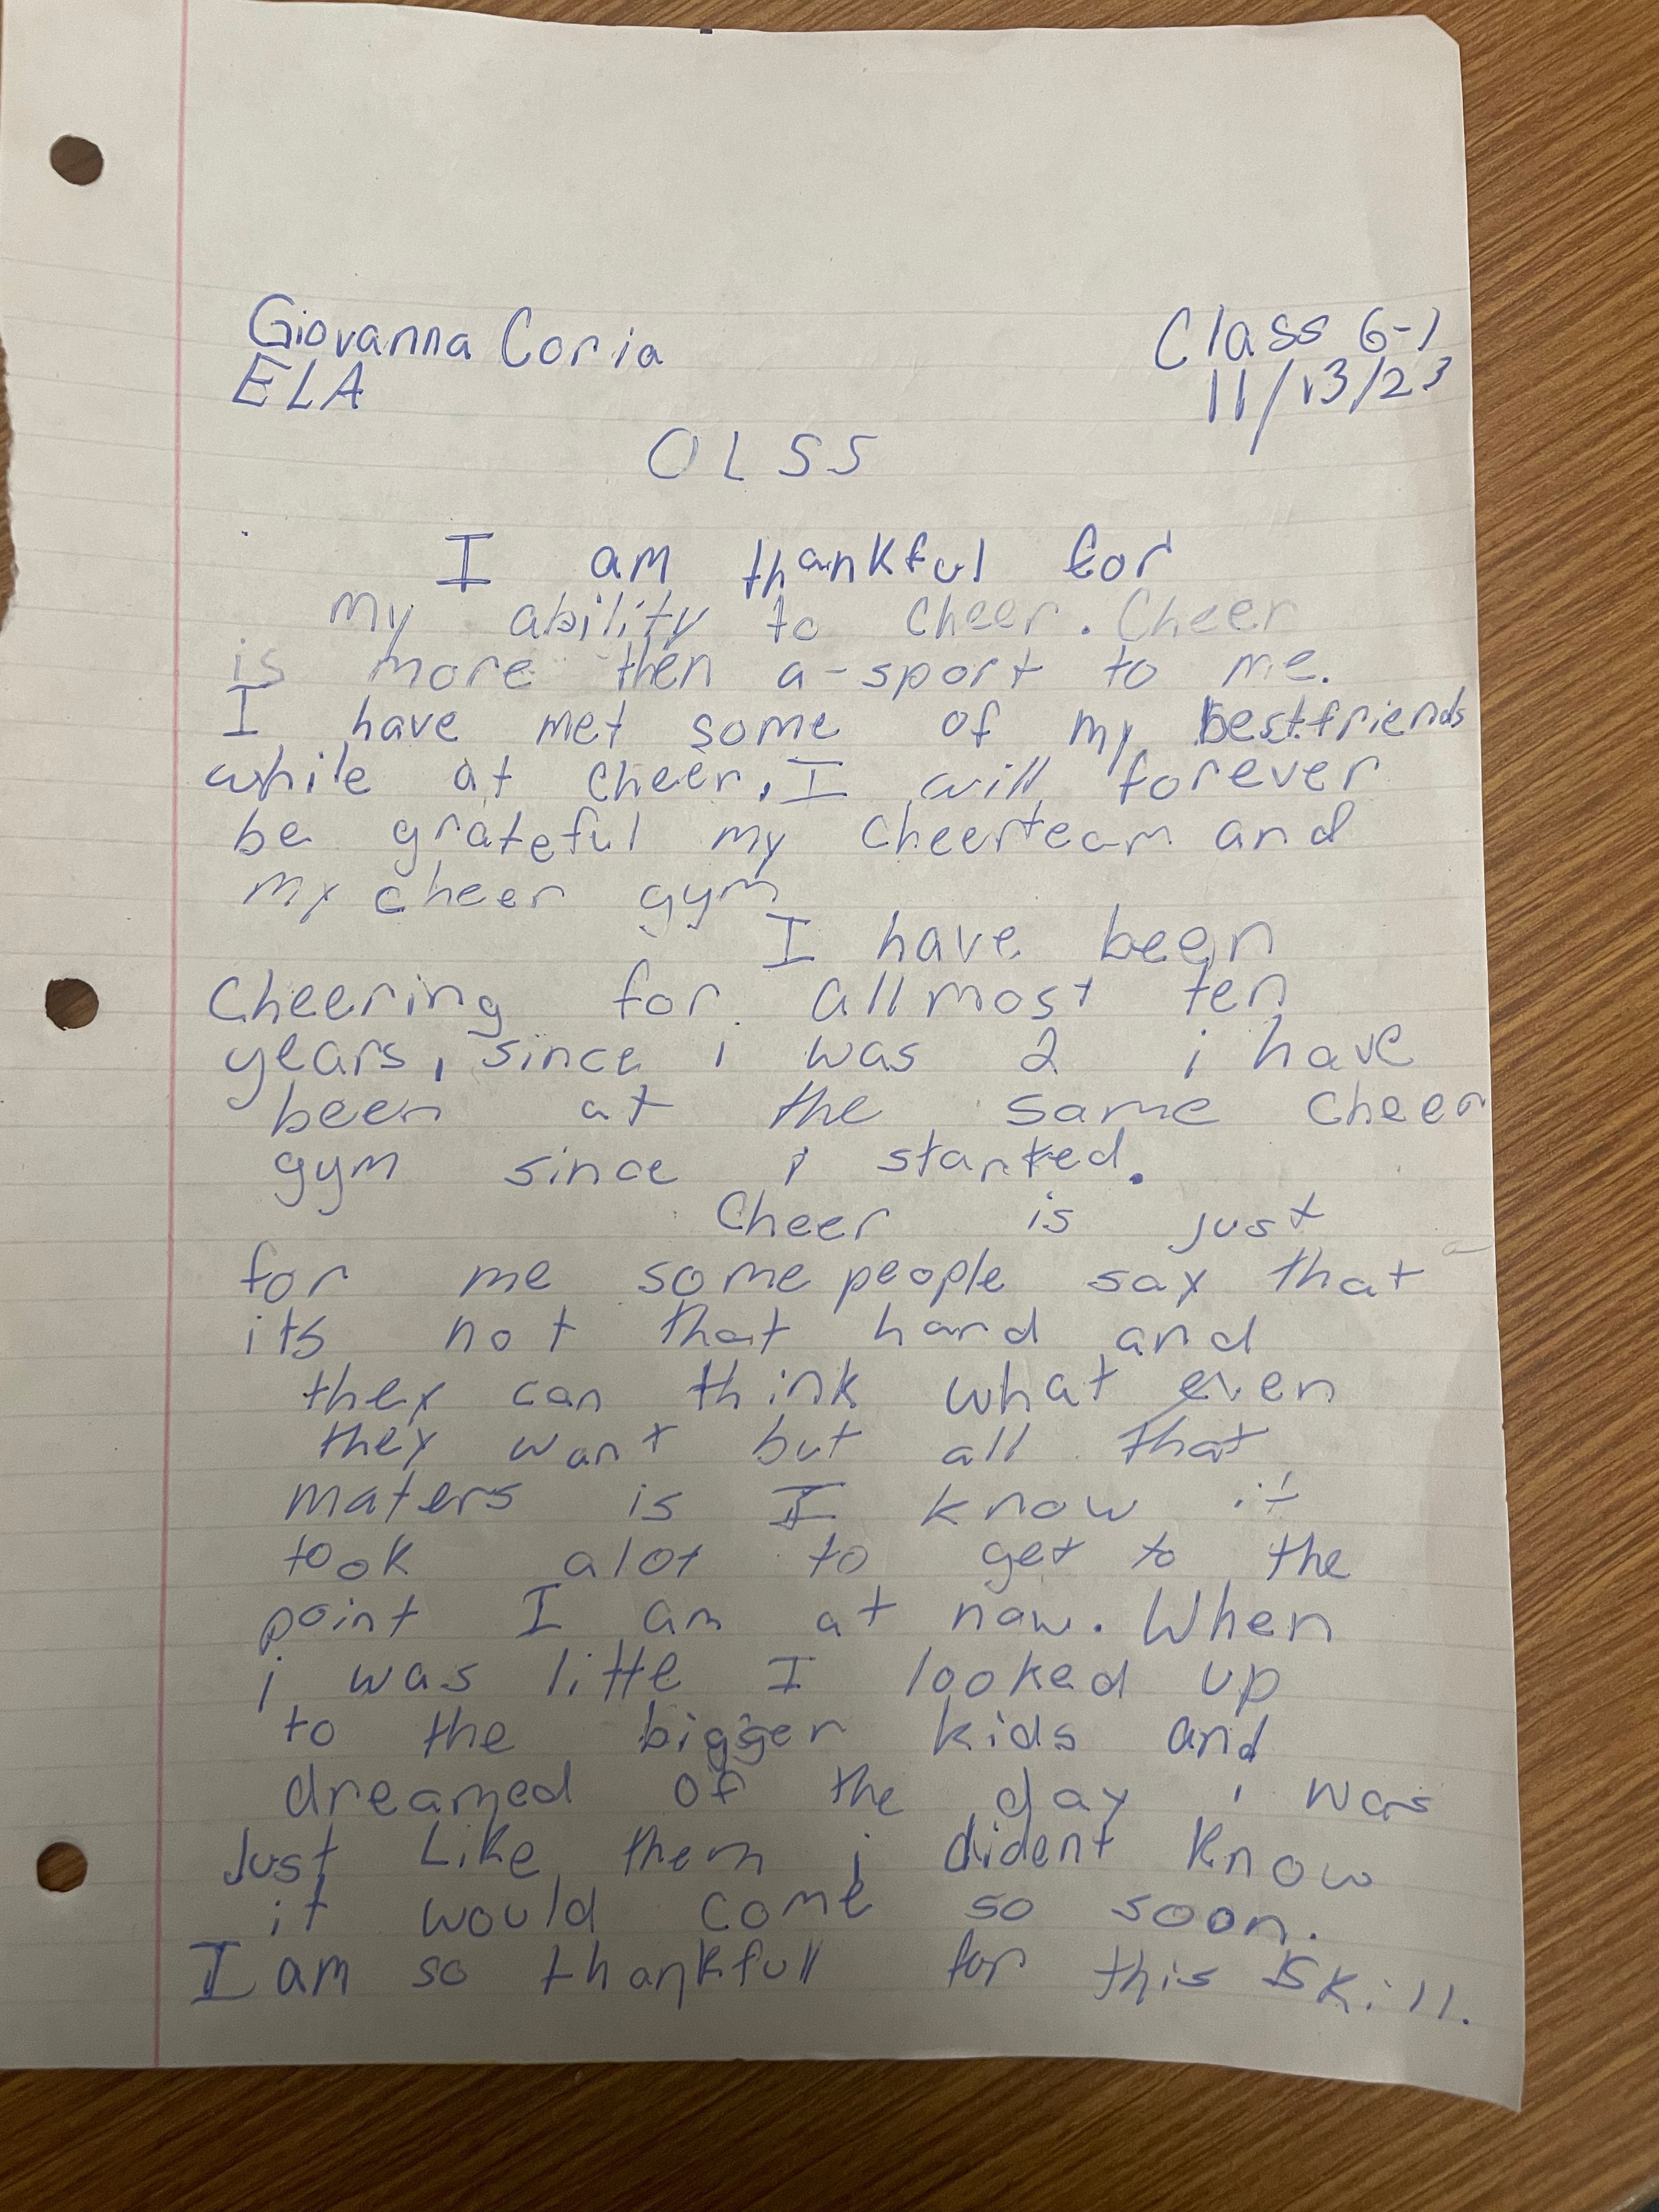 Giovanna Coria
Class 6-1
ELA
11/13/23
OLSS
I am thankful for
my ability to cheer. Cheer
is more then a-sport to me.
I have met some of my bestfriends
while at cheer. I will forever
be grateful my cheerteam and
my cheer gym
I have been
Cheering for allmost ten
years, since i was 2 i have
been at the same cheer
gym since i started.
Cheer is just
for me some people say that
its not that hard and
they can think what even
they want but all that
maters is I know it
took alot to get to the
point I am at now. When
i was little I looked up
to the bigger kids and
dreamed of the day i was
Just Like them i dident know
it would come so soon.
I am so thankfull for this skill.